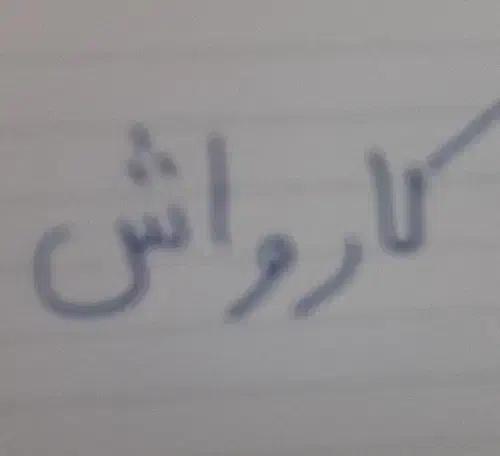 كارواش